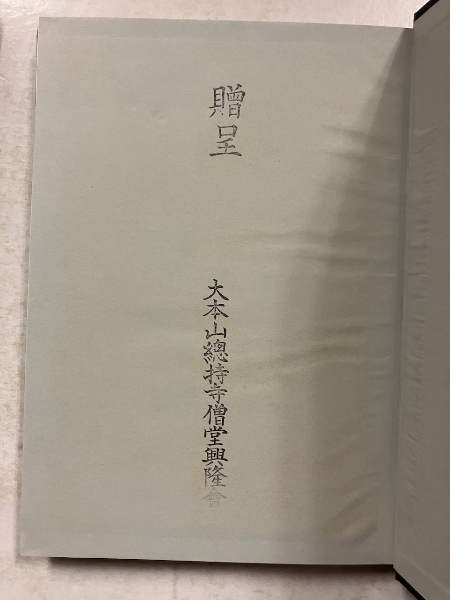 贈呈
大本山總持寺僧堂興隆會